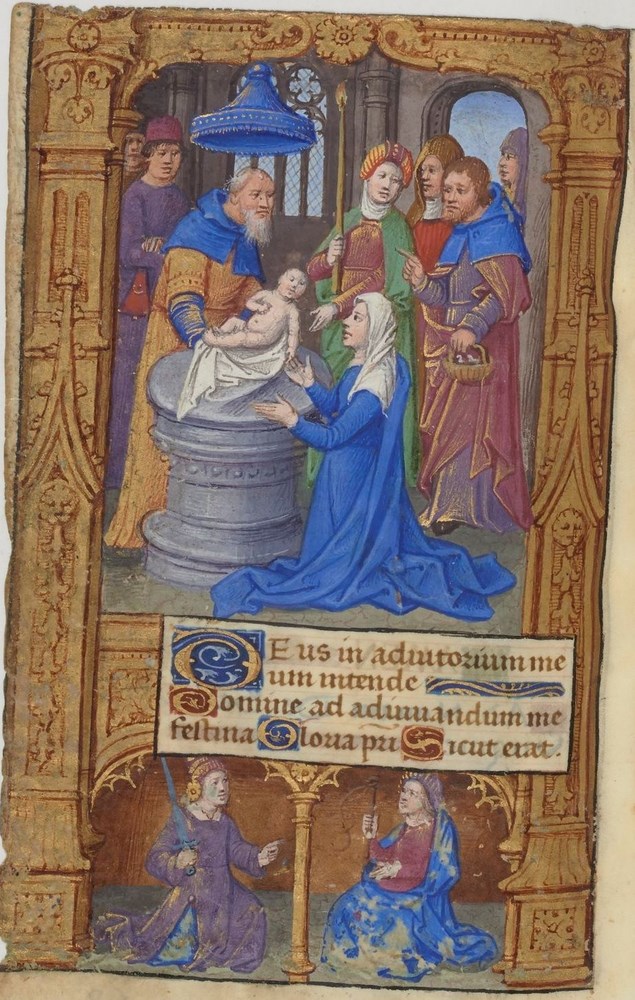 Deus in adiutorium me
um intende
Domine ad adiuuandum me
festina Gloria pri Sicut erat.